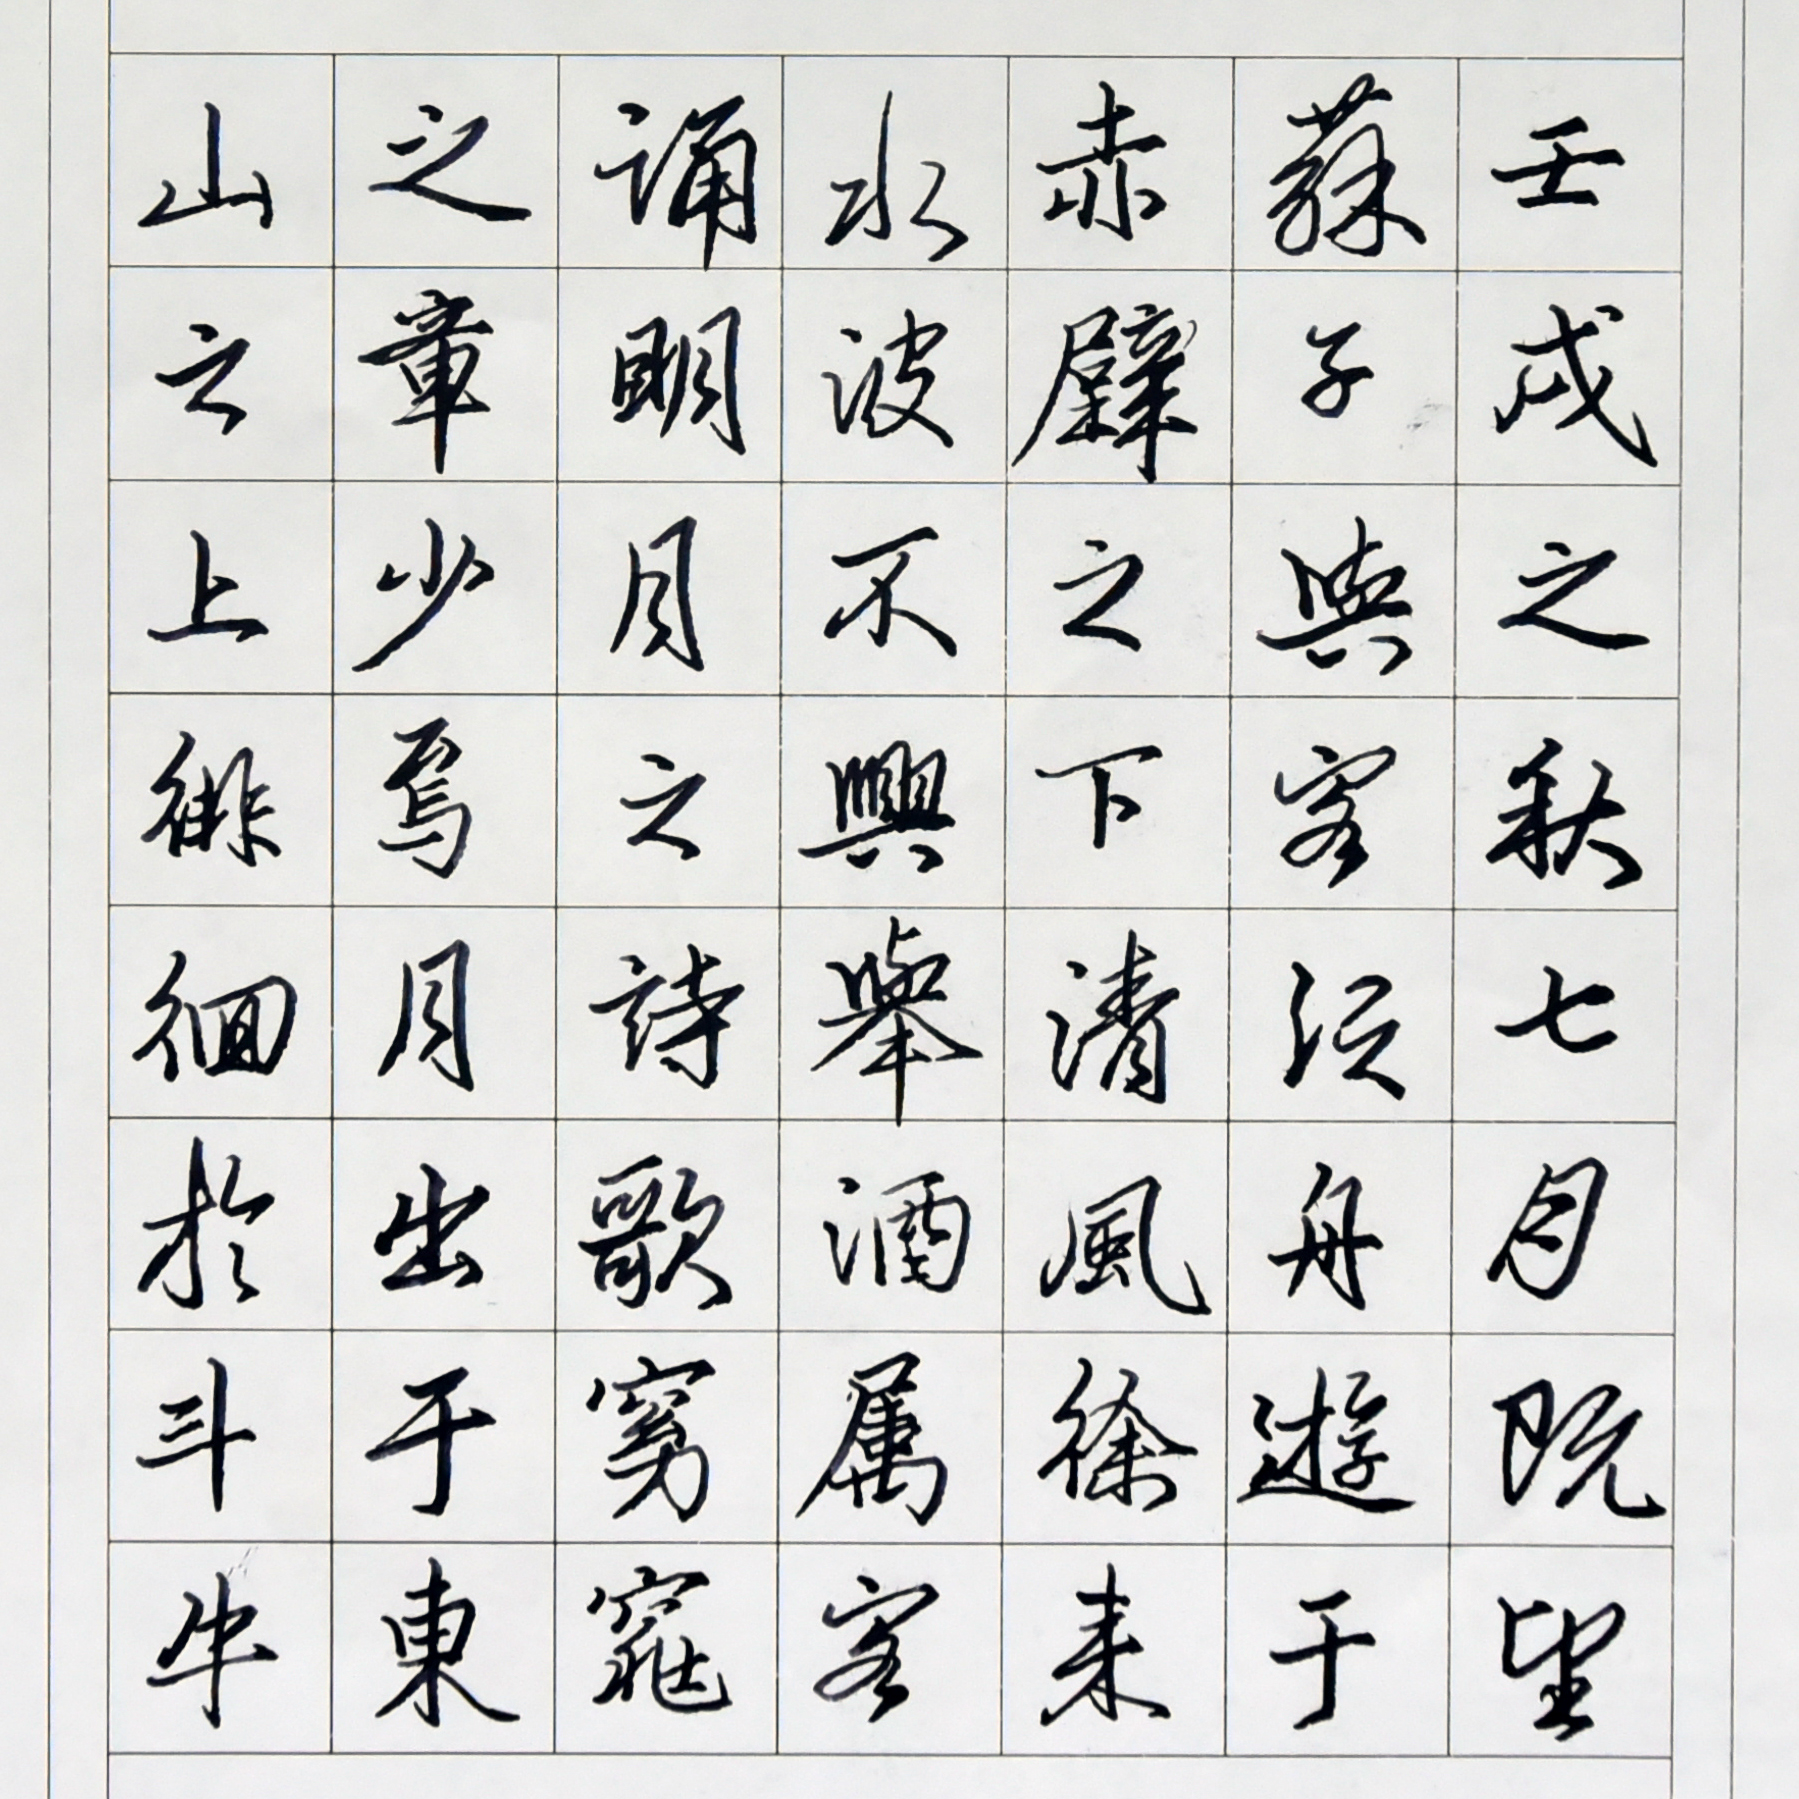 壬戌之秋七月既望
蘇子與客泛舟遊于
赤壁之下清風徐來
水波不興舉酒属客
誦明月之詩歌窈窕
之章少焉月出于東
山之上徘徊於斗牛